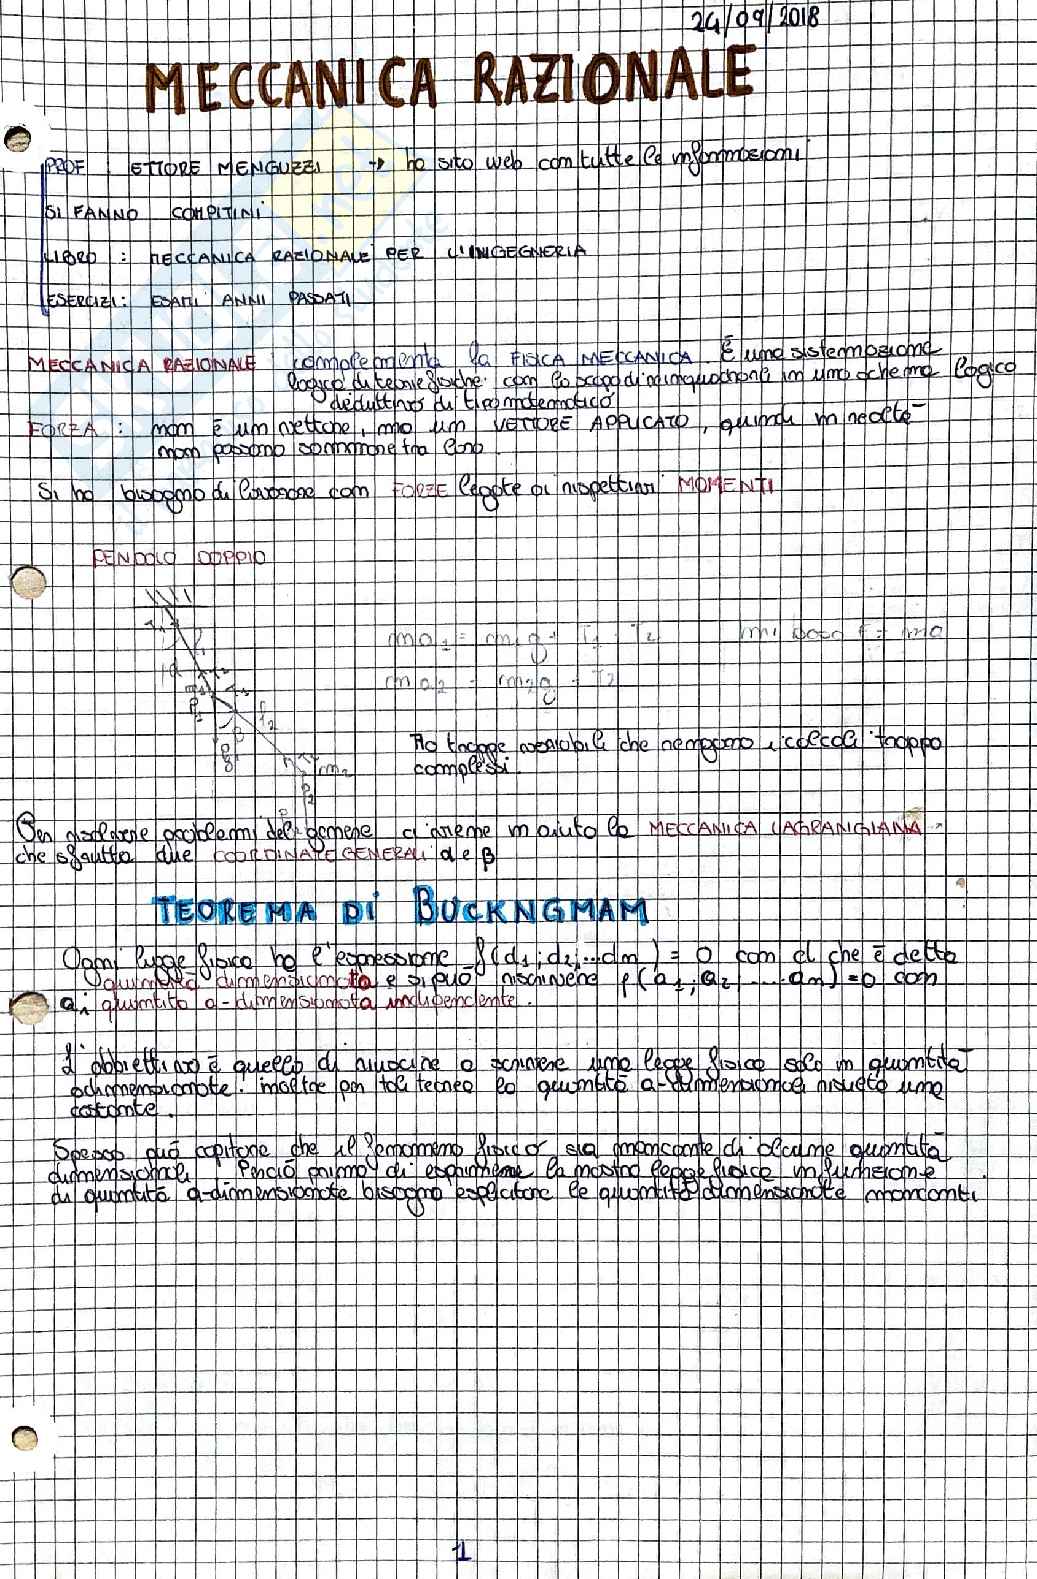 24/09/2018
MECCANICA RAZIONALE
PROF : ETTORE MENGUZZI → ha sito web con tutte le informazioni
SI FANNO COMPITINI
LIBRO : MECCANICA RAZIONALE PER L'INGEGNERIA
ESERCIZI: ESAMI ANNI PASSATI
MECCANICA RAZIONALE : complementa la FISICA MECCANICA. È una sistemazione
logica di teorie fisiche con lo scopo di inquadrarli in uno schema logico
deduttivo di tipo matematico
FORZA : non è un vettore, ma un VETTORE APPLICATO, quindi in realtà
non possono sommare tra loro.
Si ha bisogno di lavorare con FORZE legate ai rispettivi MOMENTI
PENDOLO DOPPIO
ma1 = m1g + T1 + T2 F = ma
ma2 = m2g + T2
m2
Ho troppe variabili che vengono i calcoli troppo
complessi.
Per risolvere problemi del genere ci viene in aiuto la MECCANICA LAGRANGIANA
che sfrutta due COORDINATE GENERALI α e β
TEOREMA Di BUCKNGMAM
Ogni legge fisica ha l'espressione f(d1; d2; ... dm) = 0 con d che è detta
quantità dimensionata e si può riscrivere f(a1; a2 | .... an) = 0 con
ai quantità a-dimensionata indipendente.
L'obbiettivo è quello di riuscire a scrivere una legge fisica solo in quantità
adimensionate. inoltre per tale teorema la quantità a-dimensionale risulta una
costante.
Spesso può capitare che il fenomeno fisico sia mancante di alcune quantità
dimensionali. Perciò prima di esprimere la nostra legge fisica in funzione
di quantità a-dimensionate bisogna esplicitare le quantità dimensionate mancanti.
1